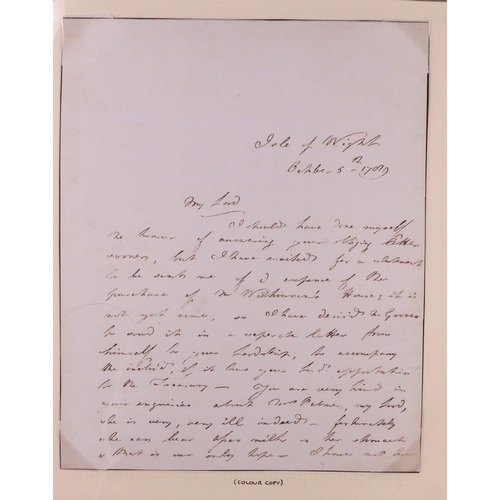 Isle of Wight
October 5th 1789
My Lord
I should have done myself
the honour of answering your obliging letter
sooner, but I have waited for a statement
to be sent me of expence of the
purchase of Mr Wilkinson's House; it is
not yet come, so I have desired
to send it in a seperate letter from
himself to your Lordship, to accompany
the if it has your approbation
to the Treasury - You are very kind in
your enquiries about Mrs my Lord,
she is very, very ill indeed - fortunately
she can bear milk on her stomach
& that is our only hope - I have not
(COLOUR COPY)